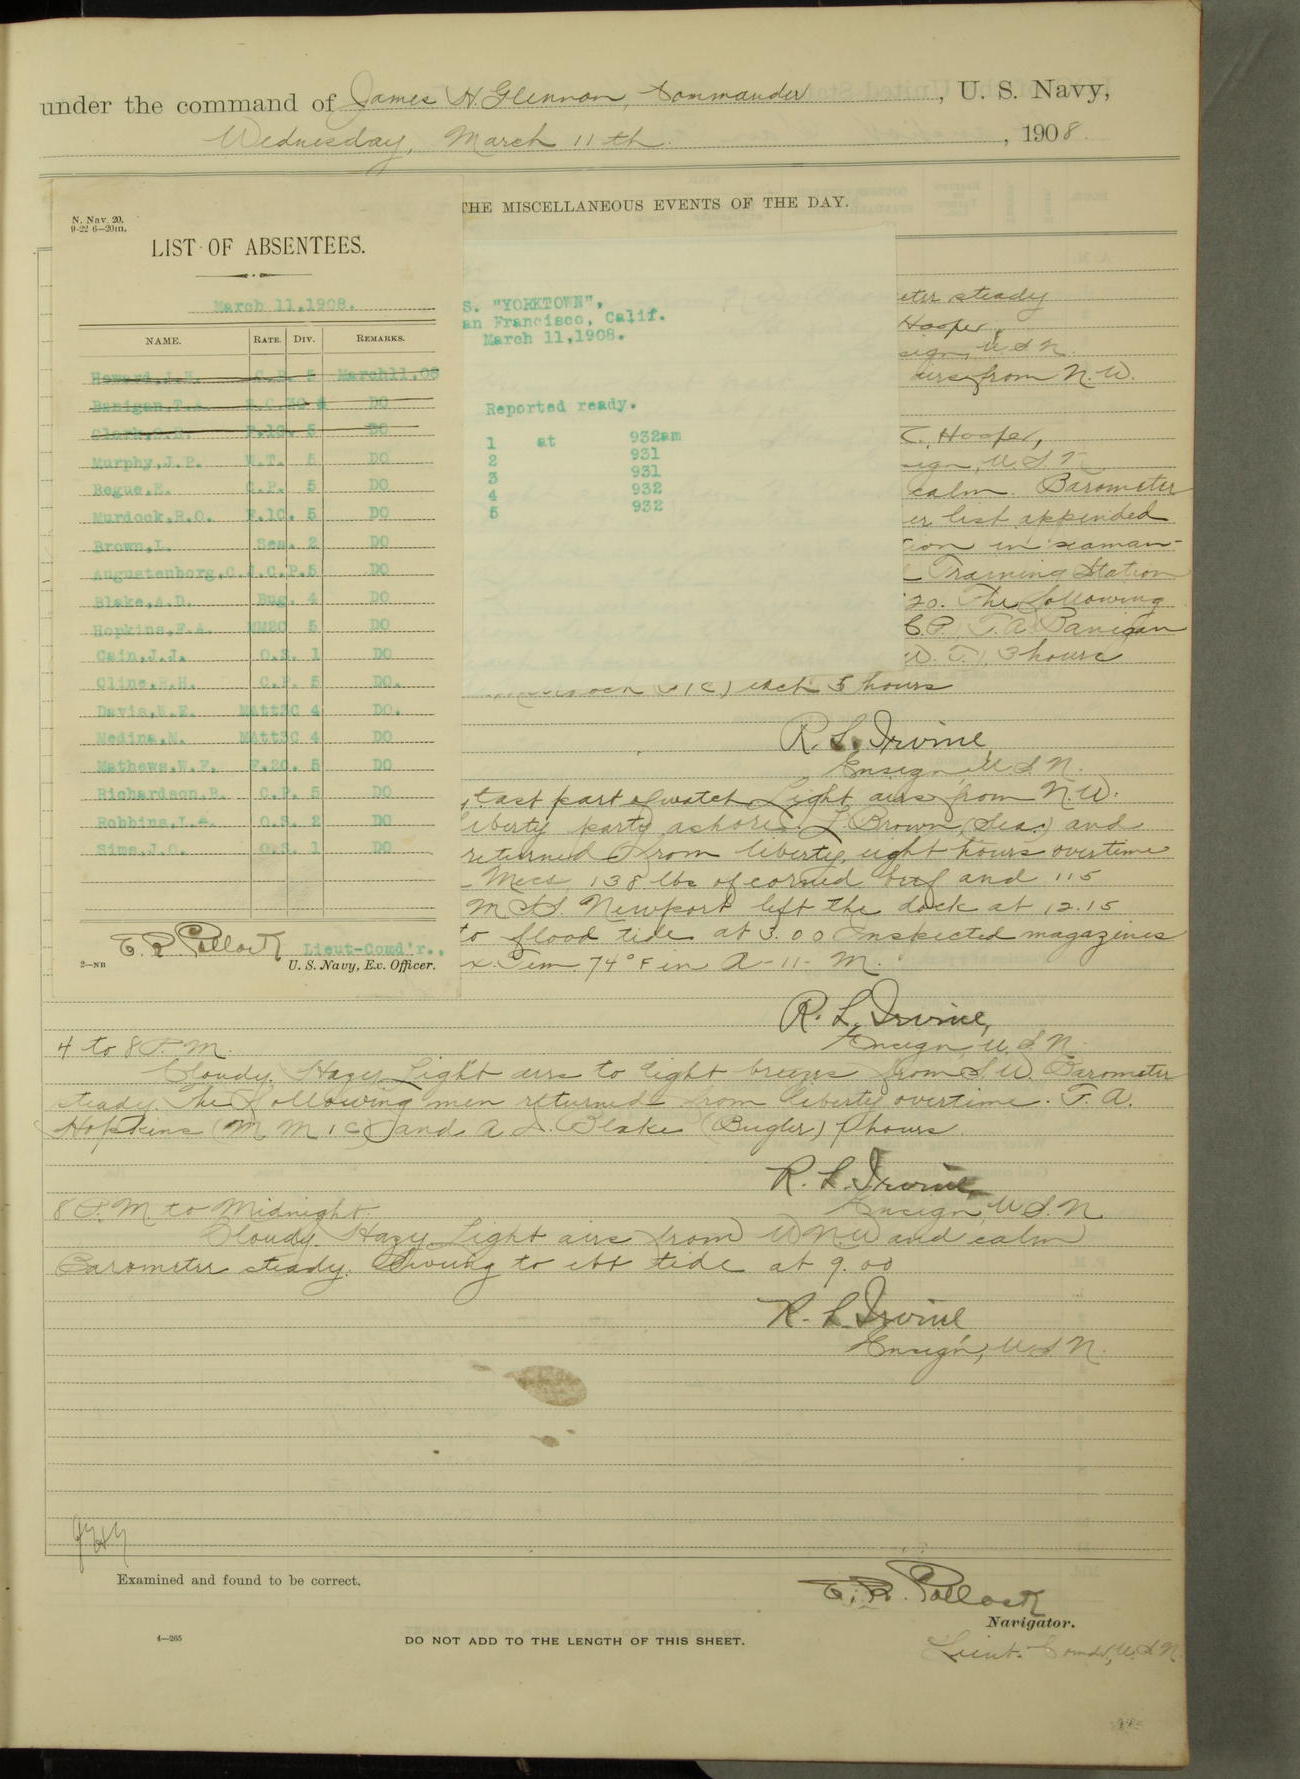 under the command of James H. Glennon, Commander, U. S. Navy,
Wednesday, March 11th, 1908
THE MISCELLANEOUS EVENTS OF THE DAY.
N. Nav. 20.
9-22 6—20m.
LIST OF ABSENTEES.
March 11,1908.
NAME. RATE. DIV. REMARKS.
Howard,J.H. C.P. 5 March11,08
Banigan,T.A. DO
Clark, F.1C. 5 DO
Murphy,J.P. W.T. 5 DO
Rogue,E. C.P. 5 DO
Murdock,R.O. F.1C. 5 DO
Brown,L. Sea. 2 DO
Augustenborg,C.J.C.P.5 DO
Blake,A.D. Bug. 4 DO
Hopkins,F.A. MM2C 5 DO
Cain,J.J. O.S. 1 DO
Cline,R.H. C.P. 5 DO.
Davis,W.E. MAtt3C 4 DO.
Medina,N. MAtt3C 4 DO
Mathews,W.F. F.2C. 5 DO
Richardson,R. C.P. 5 DO
Robbins,L.e. O.S. 2 DO
Sims,J.C. O.S. 1 DO
E. R. Pollock Lieut-Comd'r.,
2—NB U. S. Navy, Ex. Officer.
S. "YORKTOWN",
an Francisco, Calif.
March 11,1908.
Reported ready.
1 at 932am
2 931
3 931
4 932
5 932
eter steady
Hooper,
sign, U S N.
airs from N.W.
C. Hooper,
sign, U. S. N.
calm. Barometer
er list appended
tion in seaman-
Training Station
20. The following
C.P. T. A. Banigan
W. T.), 3 hours
1C) each 5 hours
R. L. Irvine,
Ensign U S N.
last part of watch Light airs from N.W.
liberty party ashore. L. Brown (Sea.) and
returned from liberty, eight hours overtime
Mess, 138 lbs of corned beef and 115
Newport left the dock at 12.15
to flood tide at 3.00 Inspected magazines
Tem. 74°F in A-11-M.
R. L. Irvine,
Ensign, U. S. N.
4 to 8 P. M.
Cloudy. Hazy Light airs to light breezes from S W. Barometer
steady. The following men returned from liberty overtime. F. A.
Hopkins (M M 1C) and A. D. Blake (Bugler) hours.
R. L. Irvine,
Ensign, U S. N.
8 P. M to Midnight.
Cloudy. Hazy Light airs from WNW and calm
Barometer steady. Swung to ebb tide at 9.00
R. L. Irvine
Ensign, U S N.
Examined and found to be correct.
E. R. Pollock
Navigator.
Lieut. Comdr, U. S. N.
4—265
DO NOT ADD TO THE LENGTH OF THIS SHEET.